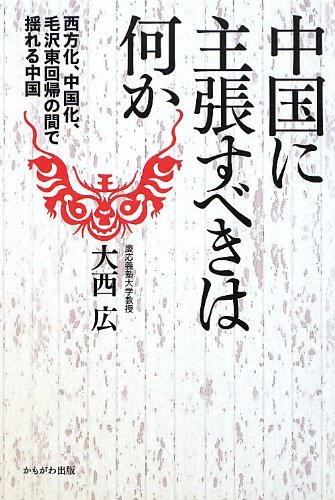 中国に
主張すべきは
何か
西方化、中国化、
毛沢東回帰の間で
揺れる中国
慶応義塾大学教授
大西 広
かもがわ出版